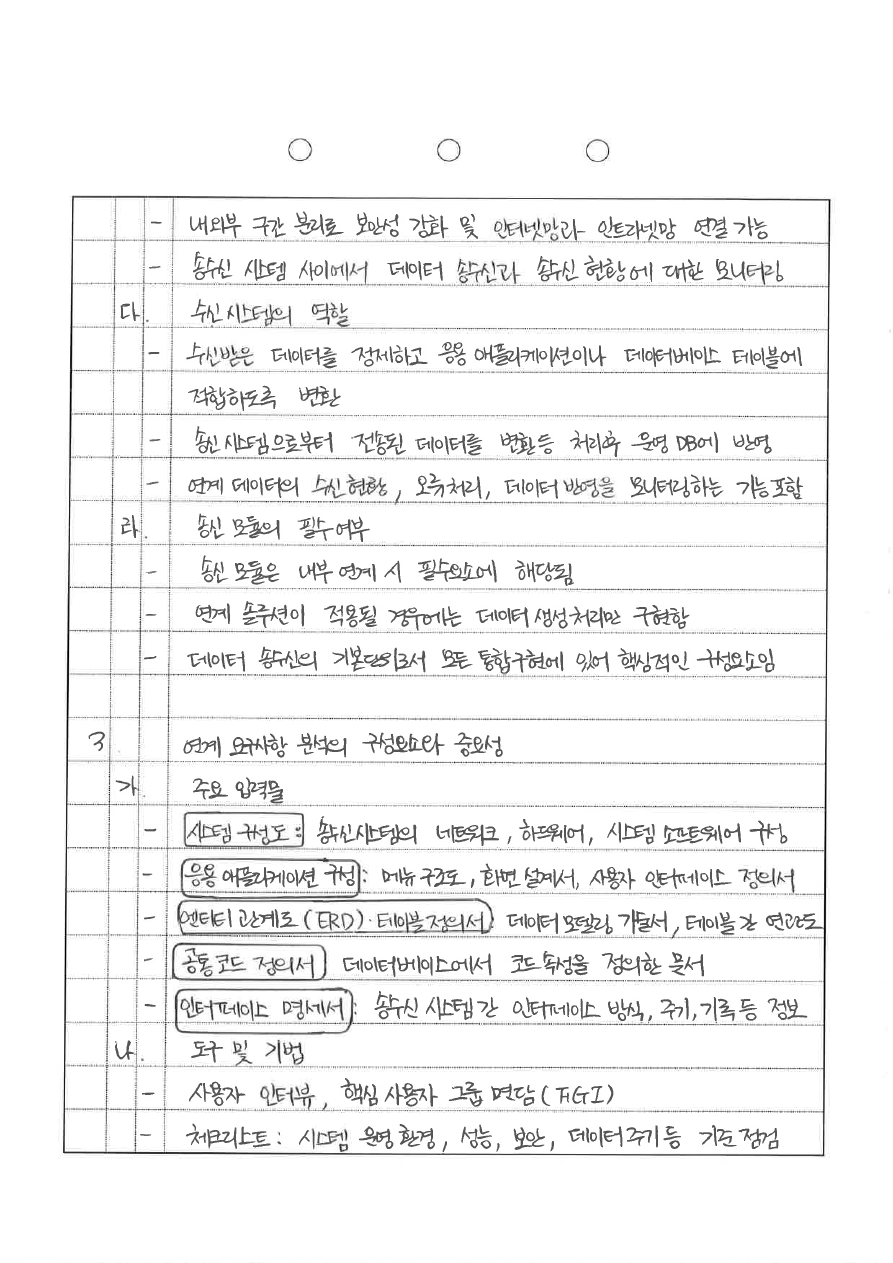 - 내외부 구간 분리로 보안성 강화 및 인터넷망과 인트라넷망 연결 가능
- 송수신 시스템 사이에서 데이터 송수신과 송수신 현황에 대한 모니터링
다. 수신시스템의 역할
- 수신받은 데이터를 정제하고 응용 애플리케이션이나 데이터베이스 테이블에
적합하도록 변환
- 송신시스템으로부터 전송된 데이터를 변환등 처리후 운영 DB에 반영
- 연계 데이터의 수신현황, 오류처리, 데이터 반영을 모니터링하는 기능포함
라. 송신 모듈의 필수여부
- 송신 모듈은 내부 연계 시 필수요소에 해당됨
- 연계 솔루션이 적용될 경우에는 데이터 생성처리만 구현함
- 데이터 송수신의 기본단위로서 모든 통합구현에 있어 핵심적인 구성요소임
3. 연계 요구사항 분석의 구성요소와 중요성
가. 주요 입력물
- 시스템 구성도 : 송수신시스템의 네트워크, 하드웨어, 시스템 소프트웨어 구성
- 응용 애플리케이션 구성 : 메뉴 구조도, 화면 설계서, 사용자 인터페이스 정의서
- 엔티티 관계도 (ERD)·테이블정의서 : 데이터 모델링 기술서, 테이블 간 연관도
- 공통코드 정의서 데이터베이스에서 코드 속성을 정의한 문서
- 인터페이스 명세서 : 송수신 시스템 간 인터페이스 방식, 주기, 기록 등 정보
나. 도구 및 기법
- 사용자 인터뷰, 핵심 사용자 그룹 면담 (FGI)
- 체크리스트 : 시스템 운영 환경, 성능, 보안, 데이터 주기 등 기준 점검